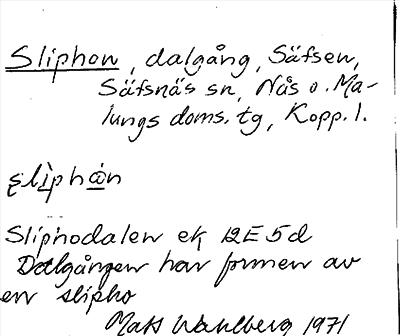 Sliphon, dalgång, Säfsen,
Säfsnäs sn, Nås o. Ma-
lungs doms. tg, Kopp. l.
slìphȧn
Sliphodalen ek 12E5d
Dalgången har formen av
en slipho
Mats Wahlberg 1971